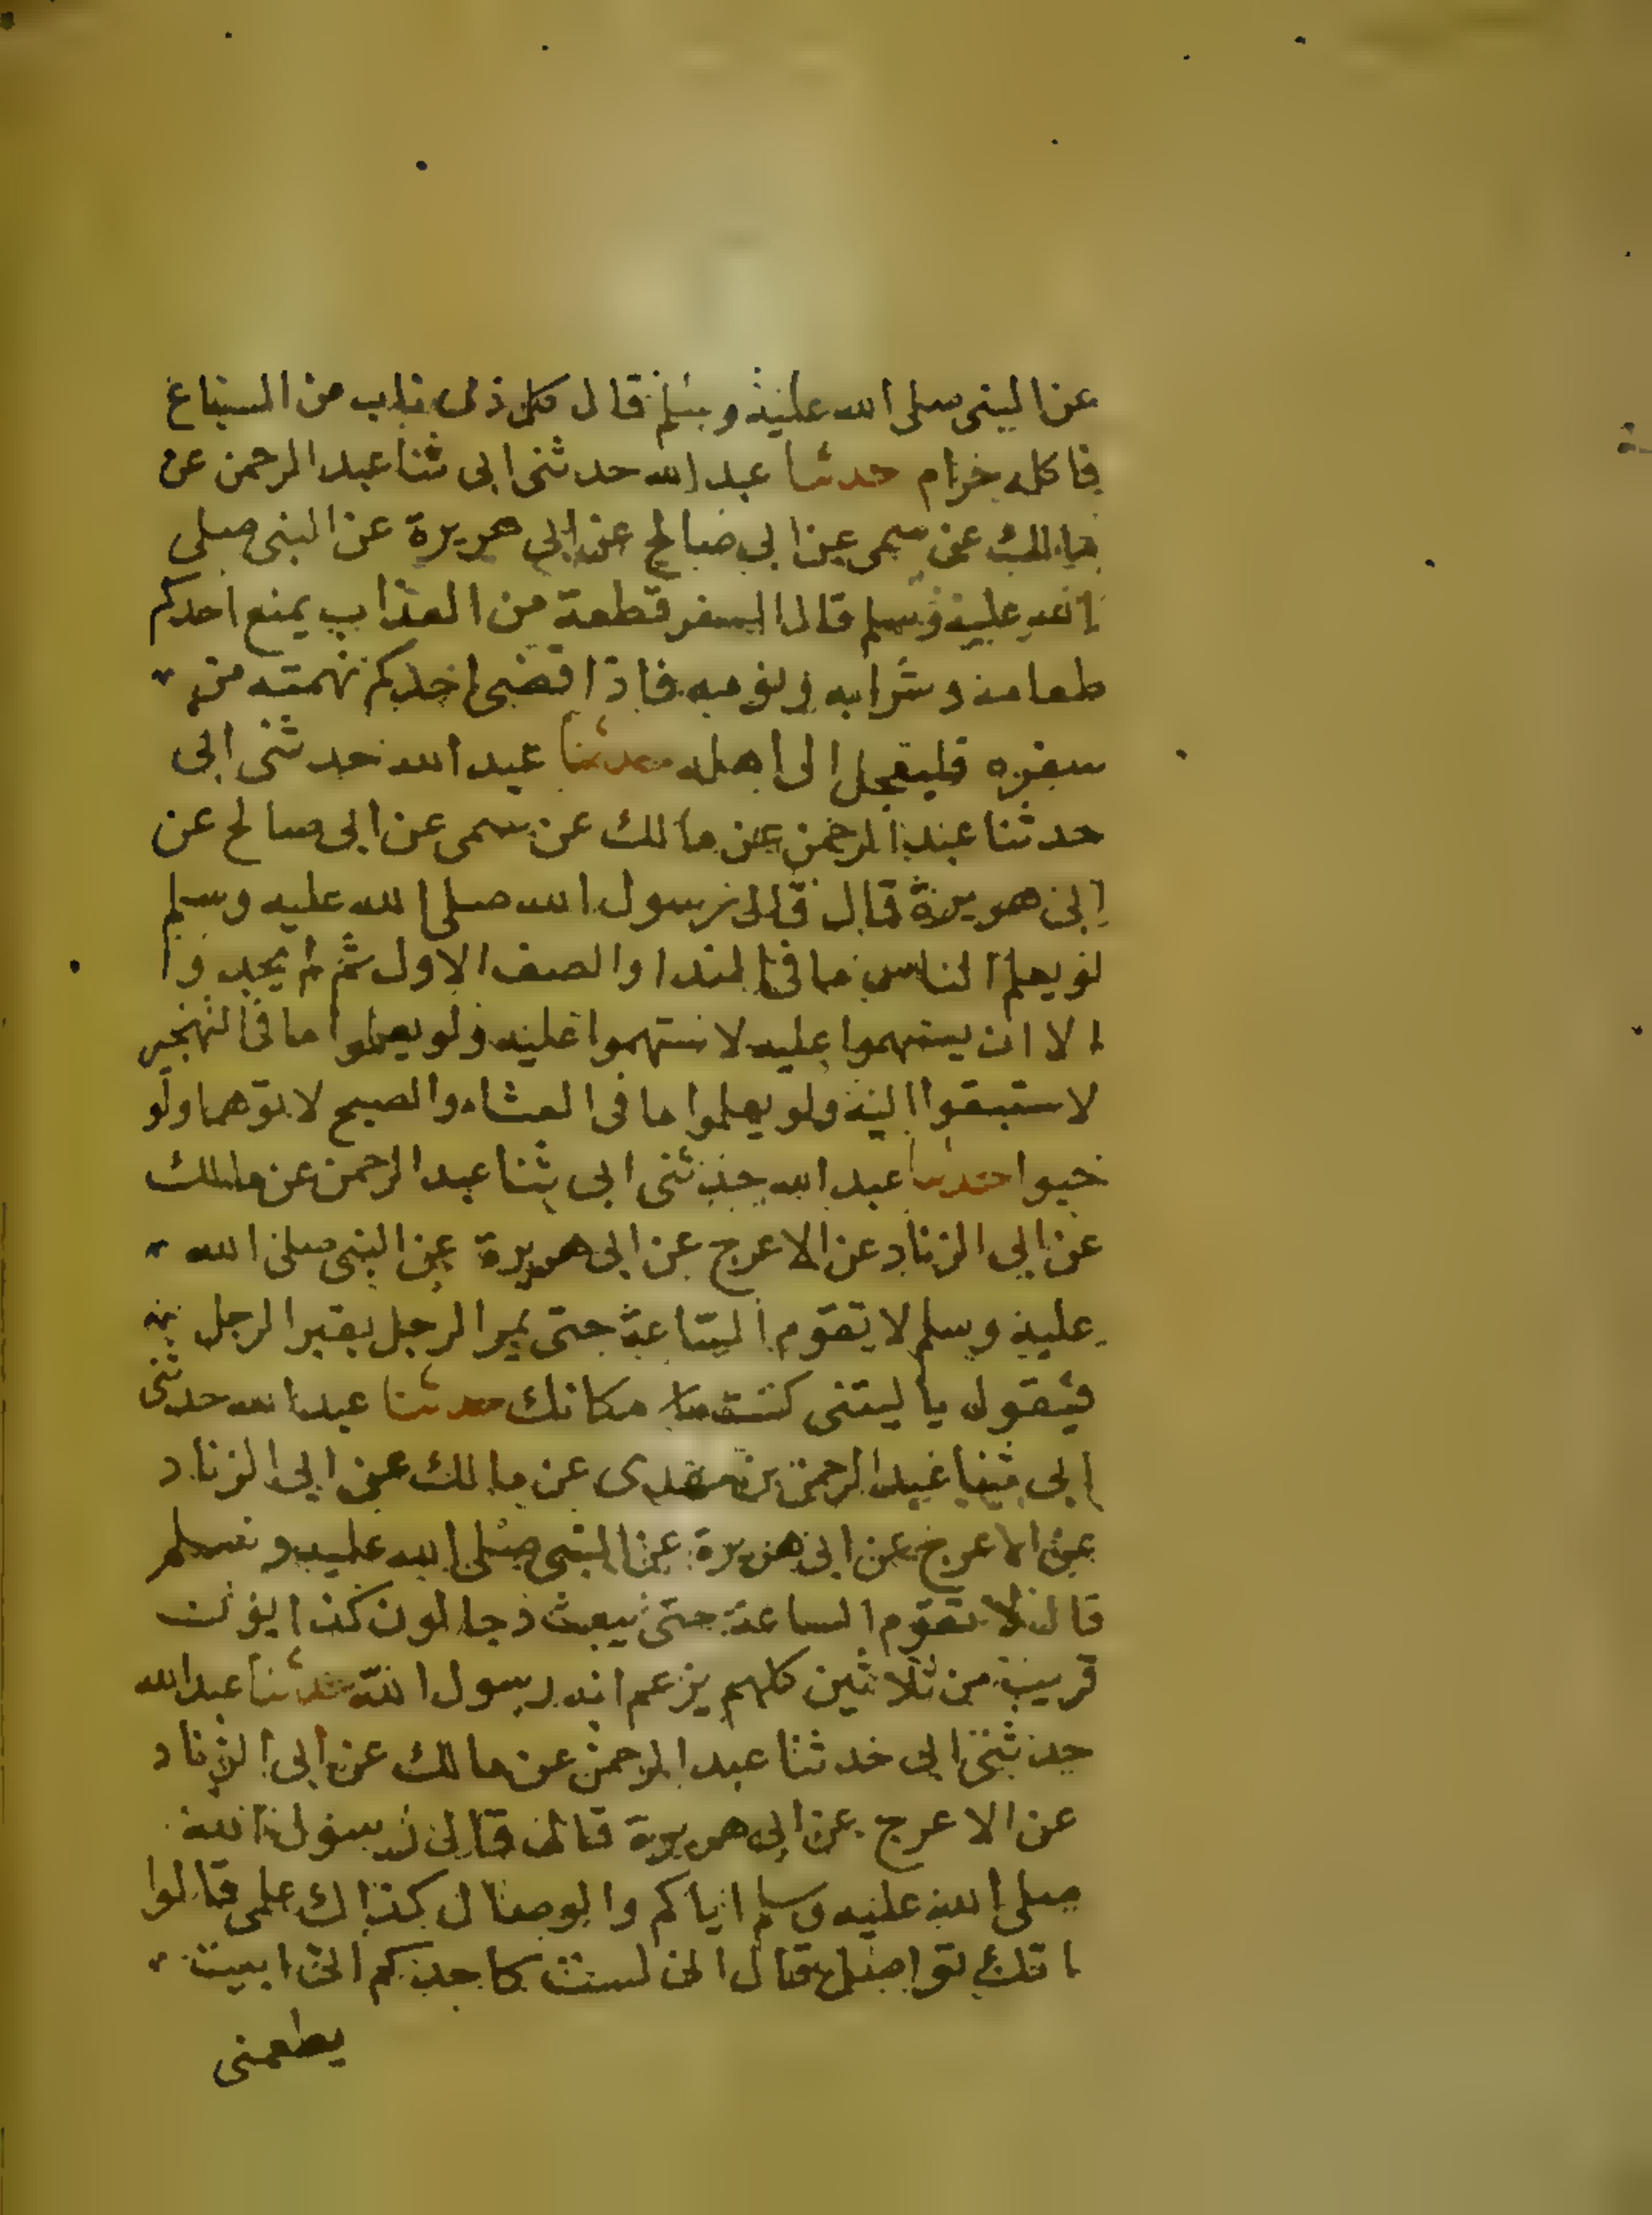 عن النبى صلى الله عليه وسلم قال كل ذى ناب من السباع
فاكله حرام حدثنا عبد الله حدثنى ابى ثنا عبد الرحمن عن
مالك عن سمى عن ابى صالح عن ابى هريرة عن النبى صلى
الله عليه وسلم قال السفر قطعة من العذاب يمنع احدكم
طعامه وشرابه ونومه فاذا قضى احدكم نهمته من
سفره فليعجل الى اهله حدثنا عبد الله حدثنى ابى
حدثنا عبد الرحمن عن مالك عن سمى عن ابى صالح عن
ابى هريرة قال قال رسول الله صلى الله عليه وسلم
لو يعلم الناس ما فى الندا والصف الاول ثم لم يجدوا
الا ان يستهموا عليه لاستهموا عليه ولو يعلموا ما فى التهجير
لاستبقوا اليه ولو يعلموا ما فى العشاء والصبح لاتوهما ولو
حبوا حدثنا عبد الله حدثنى ابى ثنا عبد الرحمن عن مالك
عن ابى الزناد عن الاعرج عن ابى هريرة عن النبى صلى الله
عليه وسلم لا تقوم الساعة حتى يمر الرجل بقبر الرجل
فيقول يا ليتنى كنت مكانك حدثنا عبد الله حدثنى
ابى ثنا عبد الرحمن بن مهدى عن مالك عن ابى الزناد
عن الاعرج عن ابى هريرة عن النبى صلى الله عليه وسلم
قال لا تقوم الساعة حتى يبعث دجالون كذابون
قريب من ثلاثين كلهم يزعم انه رسول الله حدثنا عبد الله
حدثنى ابى حدثنا عبد الرحمن عن مالك عن ابى الزناد
عن الاعرج عن ابى هريرة قال قال رسول الله
صلى الله عليه وسلم اياكم والوصال كذاك علمى قالوا
انك تواصل قال انى لست كاحدكم انى ابيت
يطعمنى